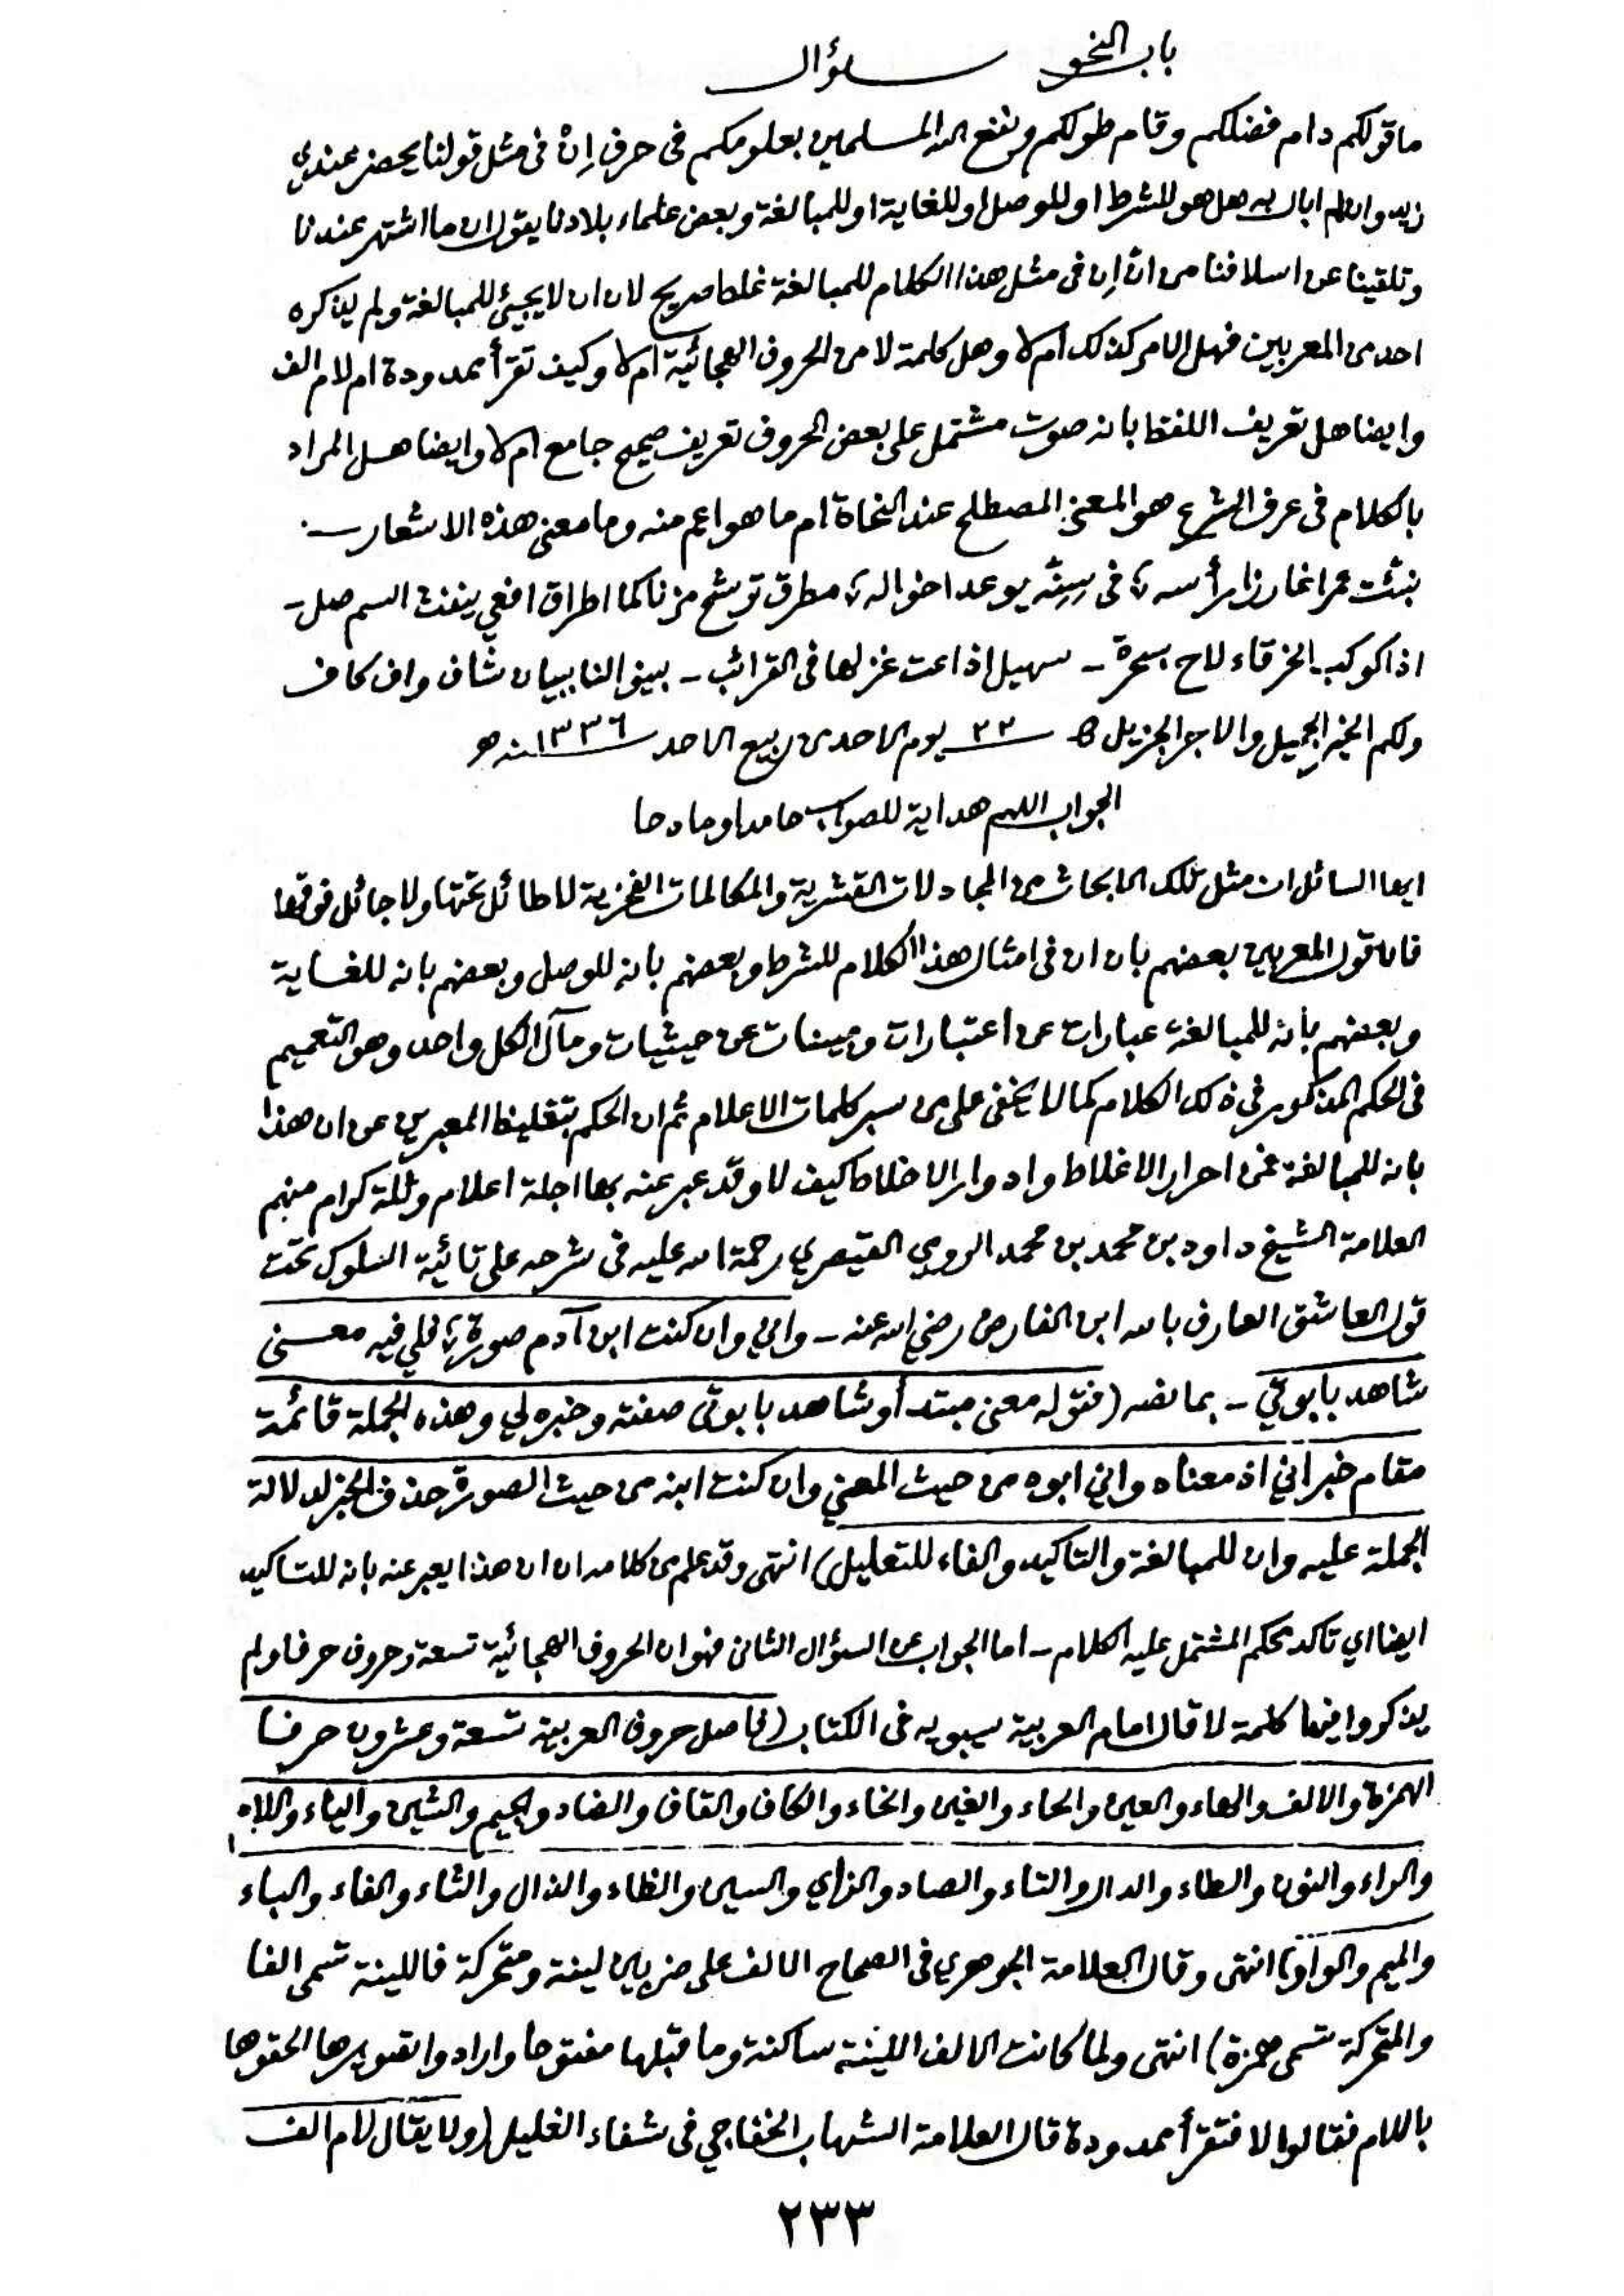 باب النحو سؤال
ما قولكم دام فضلكم وقام طولكم ونفع الله المسلمين بعلومكم فى حرف اِنْ فى مثل قولنا يحضر عندي
زيد وان لم ابال به هل هو للشرط او للوصل او للغاية او للمبالغة وبعض علماء بلادنا يقول ان ما اشتهر عندنا
وتلقينا عن اسلافنا من انّ اِن فى مثل هذا الكلام للمبالغة غلط صريح لان ان لا يجيئ للمبالغة ولم يذكره
احد من المعربين فهل الامر كذلك ام لا وهل كلمة لا من الحروف الهجائية ام لا وكيف تقرأ ممدودة ام لام الف
وايضا هل تعريف اللفظ بانه صوت مشتمل على بعض الحروف تعريف صحيح جامع ام لا وايضا هل المراد
بالكلام فى عرف الشرع هو المعنى المصطلح عند النحاة ام ما هو اعم منه وما معنى هذه الاشعار
نبئت عمرا غارزا رأسه ؛ فى سِنَةٍ يوعد اخواله ؛ مطرق ترشح مزنا كما اطراق افعي ينفث السم صل -
اذا كوكب الخرقاء لاح بسحرة - سهيل اذاعت غزلها فى القرائب - بينوا لنا ببيان شاف واف كاف
ولكم الخير الجميل والاجر الجزيل ٢٣ يوم الاحد من ربيع الاحد سنه ١٣٣٦ هـ
الجواب اللهم هداية للصواب حامدا ومادحا
ايها السائل ان مثل تلك الابحاث من المجادلات القشرية والمكالمات لا طائل تحتها ولا جائل فوقها
فان قول المعربين بعضهم بان ان فى امثال هذا الكلام للشرط وبعضهم بانه للوصل وبعضهم بانه للغاية
وبعضهم بأنه للمبالغة عبارات عن اعتبارات ومبينات عن حيثيات ومآل الكل واحد وهو التعميم
فى الحكم المذكور فى ذلك الكلام كما لا يخفى على من سبر كلمات الاعلام ثم ان الحكم بتغليظ المعبرين عن ان هذا
بانه للمبالغة من احرار الاغلاط وادوار الاخلاط كيف لا وقد عبر عنه بها اجلة اعلام وثلة كرام منهم
العلامة الشيخ داود بن محمد بن محمد الرومي القيصري رحمة الله عليه فى شرحه على تائية السلوك تحت
قول العاشق العارف بالله ابن الفارض رضي الله عنه - واني وان كنت ابن آدم صورة ؛ فلي فيه معنى
شاهد بابوتي - بما نصه (فقوله معنى مبتدأ وشاهد بابوتى صفته وخبره لي وهذه الجملة قائمة
مقام خبر اني اذ معناه واني ابوه من حيث المعنى وان كنت ابنه من حيث الصورة حذف الخبر لدلالة
الجملة عليه وان للمبالغة والتاكيد والفاء للتعليل) انتهى وقد علم من كلامه ان ان هذا يعبر عنه بانه للتاكيد
ايضا اي تاكد حكم المشتمل عليه الكلام - اما الجواب عن السؤال الثانى فهو ان الحروف الهجائية تسعة وحروف حرفا ولم
يذكروا فيها كلمة لا قال امام العربية سيبويه فى الكتاب (فاصل حروف العربية تسعة وعشرون حرفا
الهمزة والالف والهاء والعين والحاء والغين والخاء والكاف والقاف والضاد والجيم والشين والياء واللام
والراء والنون والطاء والدال والتاء والصاد والزاي والسين والظاء والذال والثاء والفاء والباء
والميم والواو) انتهى وقال العلامة الجوهري فى الصحاح الالف على ضربين لينة ومتحركة فاللينة تسمى الفا
والمتحركة تسمى همزة) انتهى ولما كانت الالف اللينة ساكنة وما قبلها مفتوحا وارادوا تصويرها الحقوها
باللام فقالوا لا فتقرأ ممدودة قال العلامة الشهاب الخفاجي فى شفاء الغليل (ولا يقال لام الف
٢٣٣